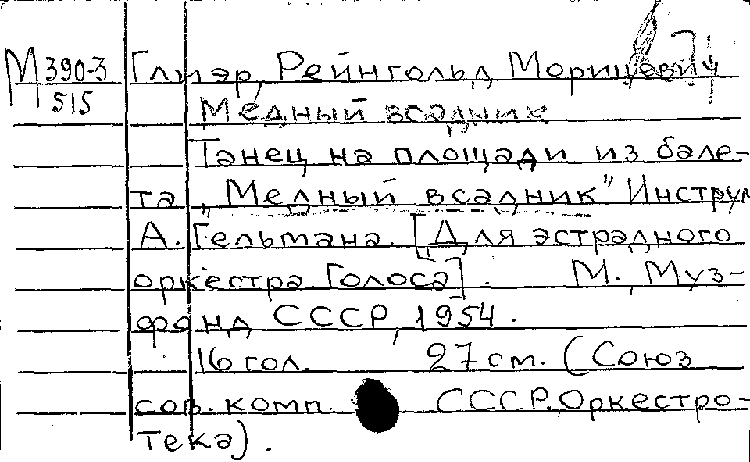 М 390-3 Глиэр, Рейнгольд Морицович
515
Медный всадник
Танец на площади из бале-
та „Медный всадник" Инструм
А. Гельтмана. [Для эстрадного
оркестра Голоса]. М., Муз-
фонд СССР, 1954.
16 гол. 27 см. (Союз
сов. комп. СССР. Оркестро-
тека).